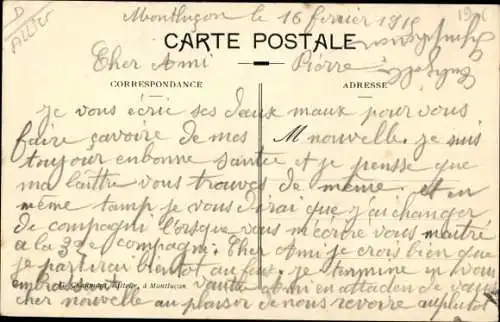 D
ALLIER
Montluçon le 16 fevrier 191
CARTE POSTALE
Cher Ami Pierre
CORRESPONDANCE
ADRESSE
je vous écrie ses deux maux pour vous
faire çavoire de mes M nouvelle. je suis
toujour enbonne santée et je pensse que
ma laittre vous trauves de même. et en
même tamp je vous dirai que j'ai changer
de compagni l'orsque vous m'ecrire vous maitré
a la 32e compagni. Cher Ami je crois bien que
je partirai bientot au feu. je termine en vous
embra vautre ami en attaden de vau
Editeur, à Montluçon
cher nouvelle au plaisir de nous revoire auplutot